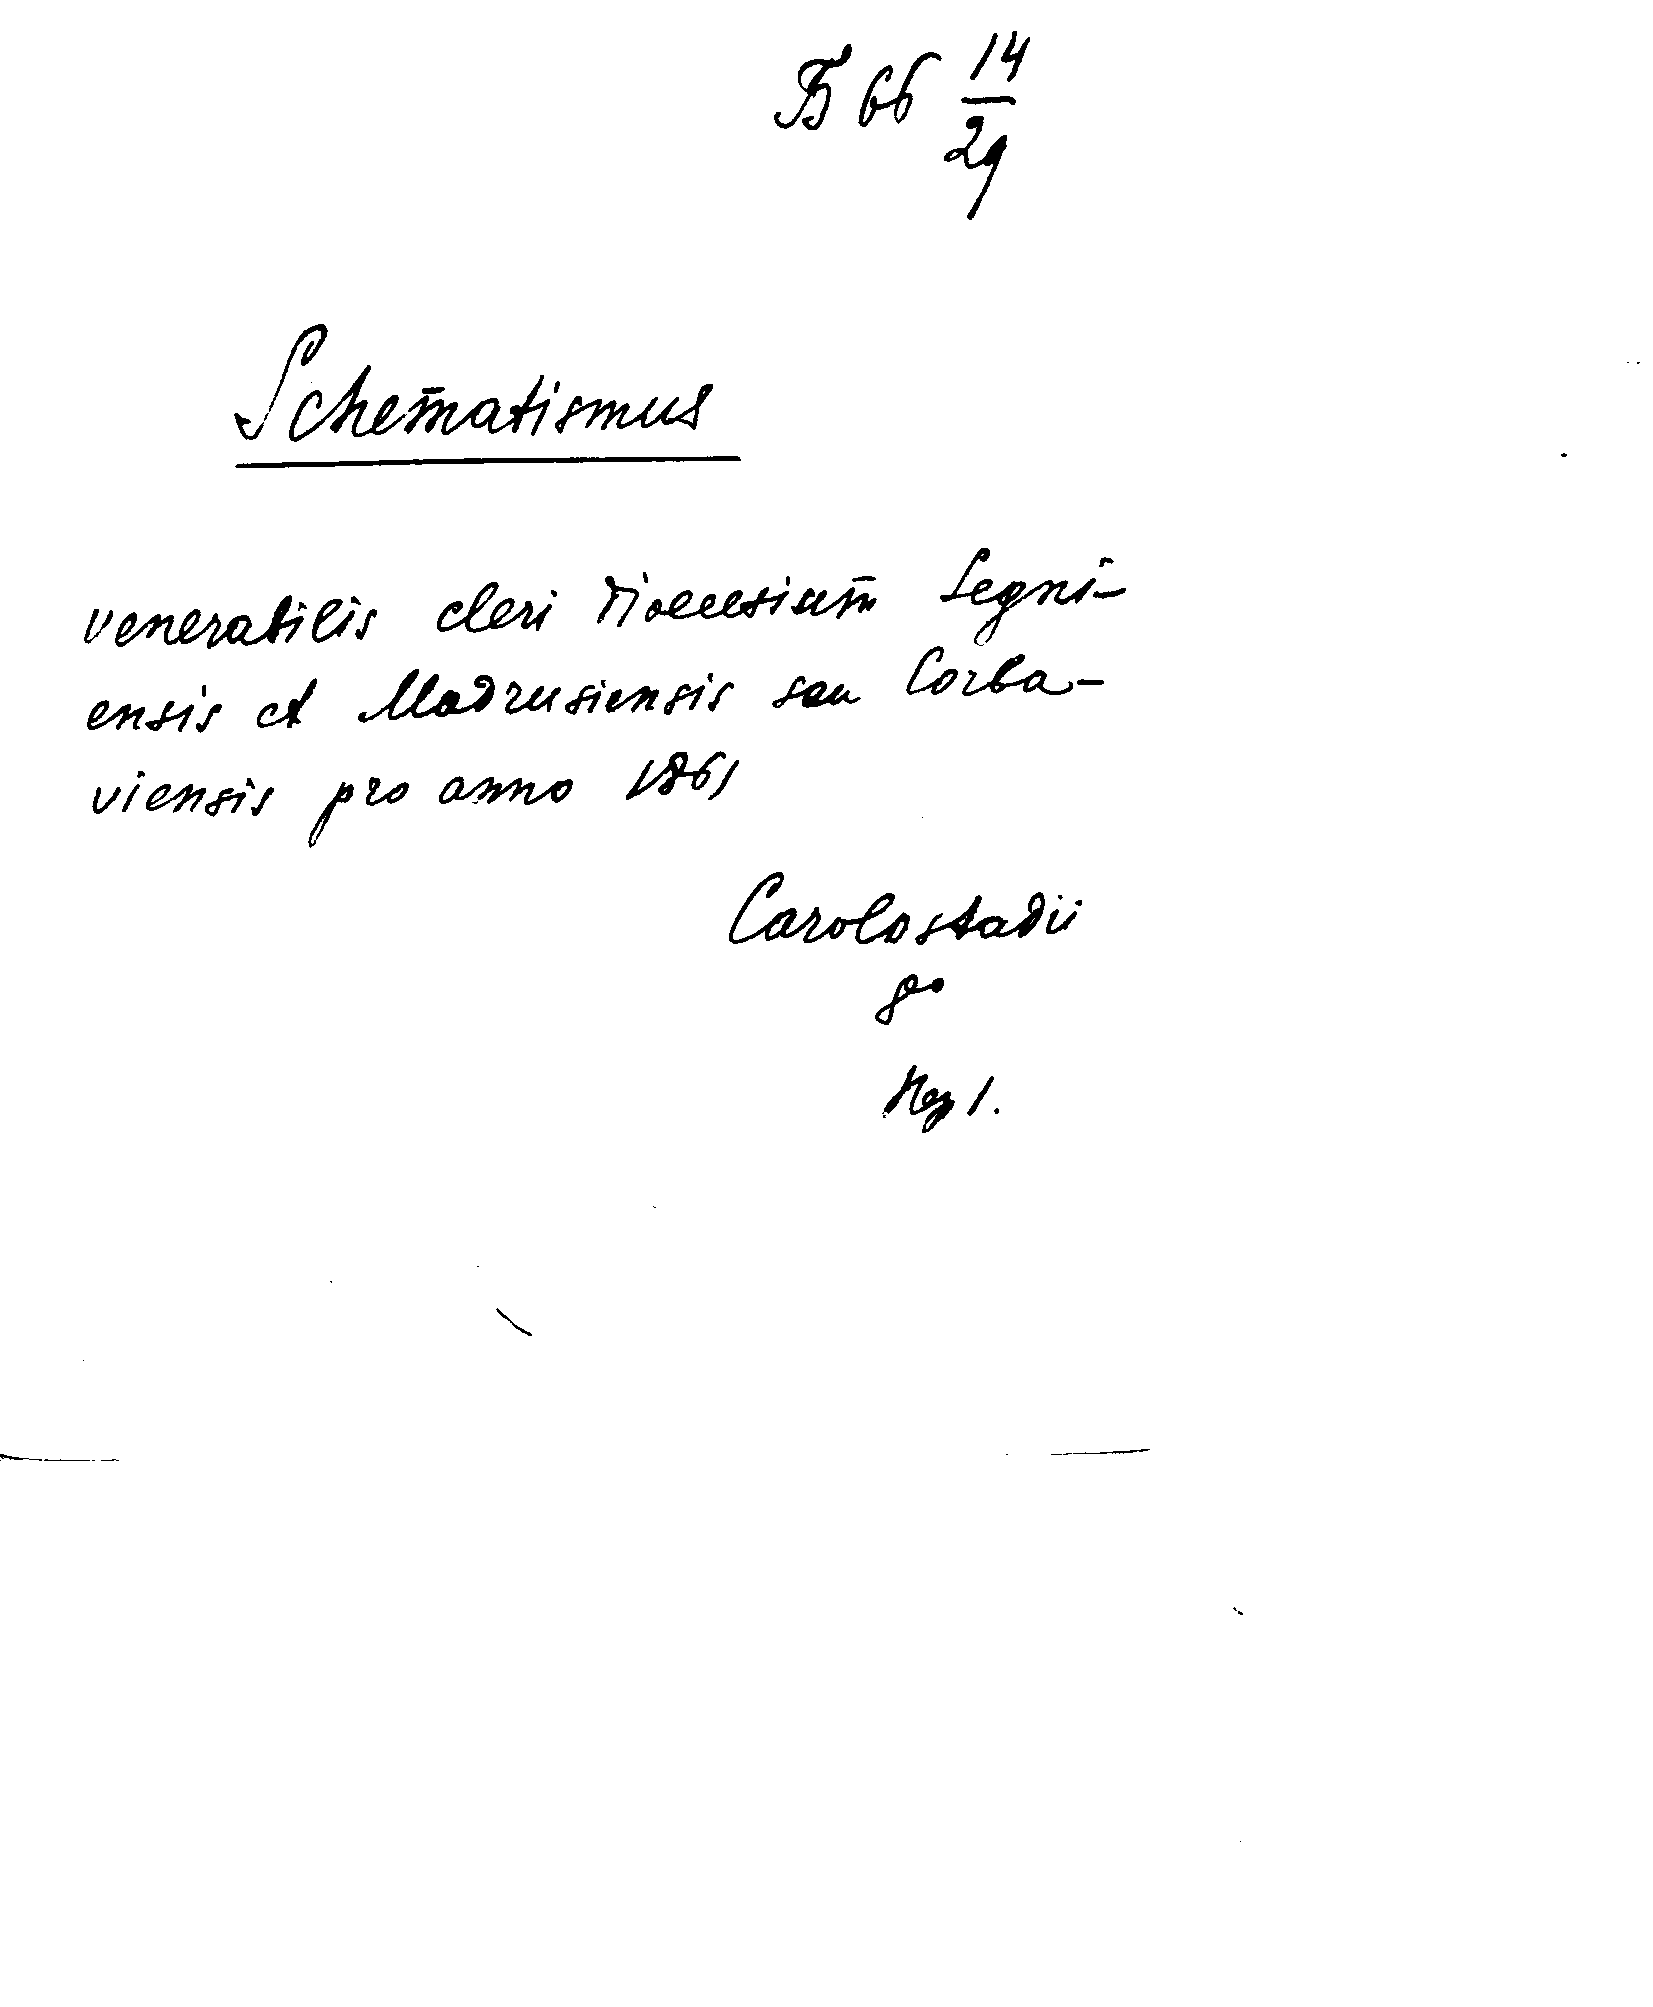 Б бб 14/29
Schematismus
venerabilis cleri dioecesium Segni-
ensis et Modrusiensis seu Corba-
viensis pro anno 1861
Carolostadii
8°
1.